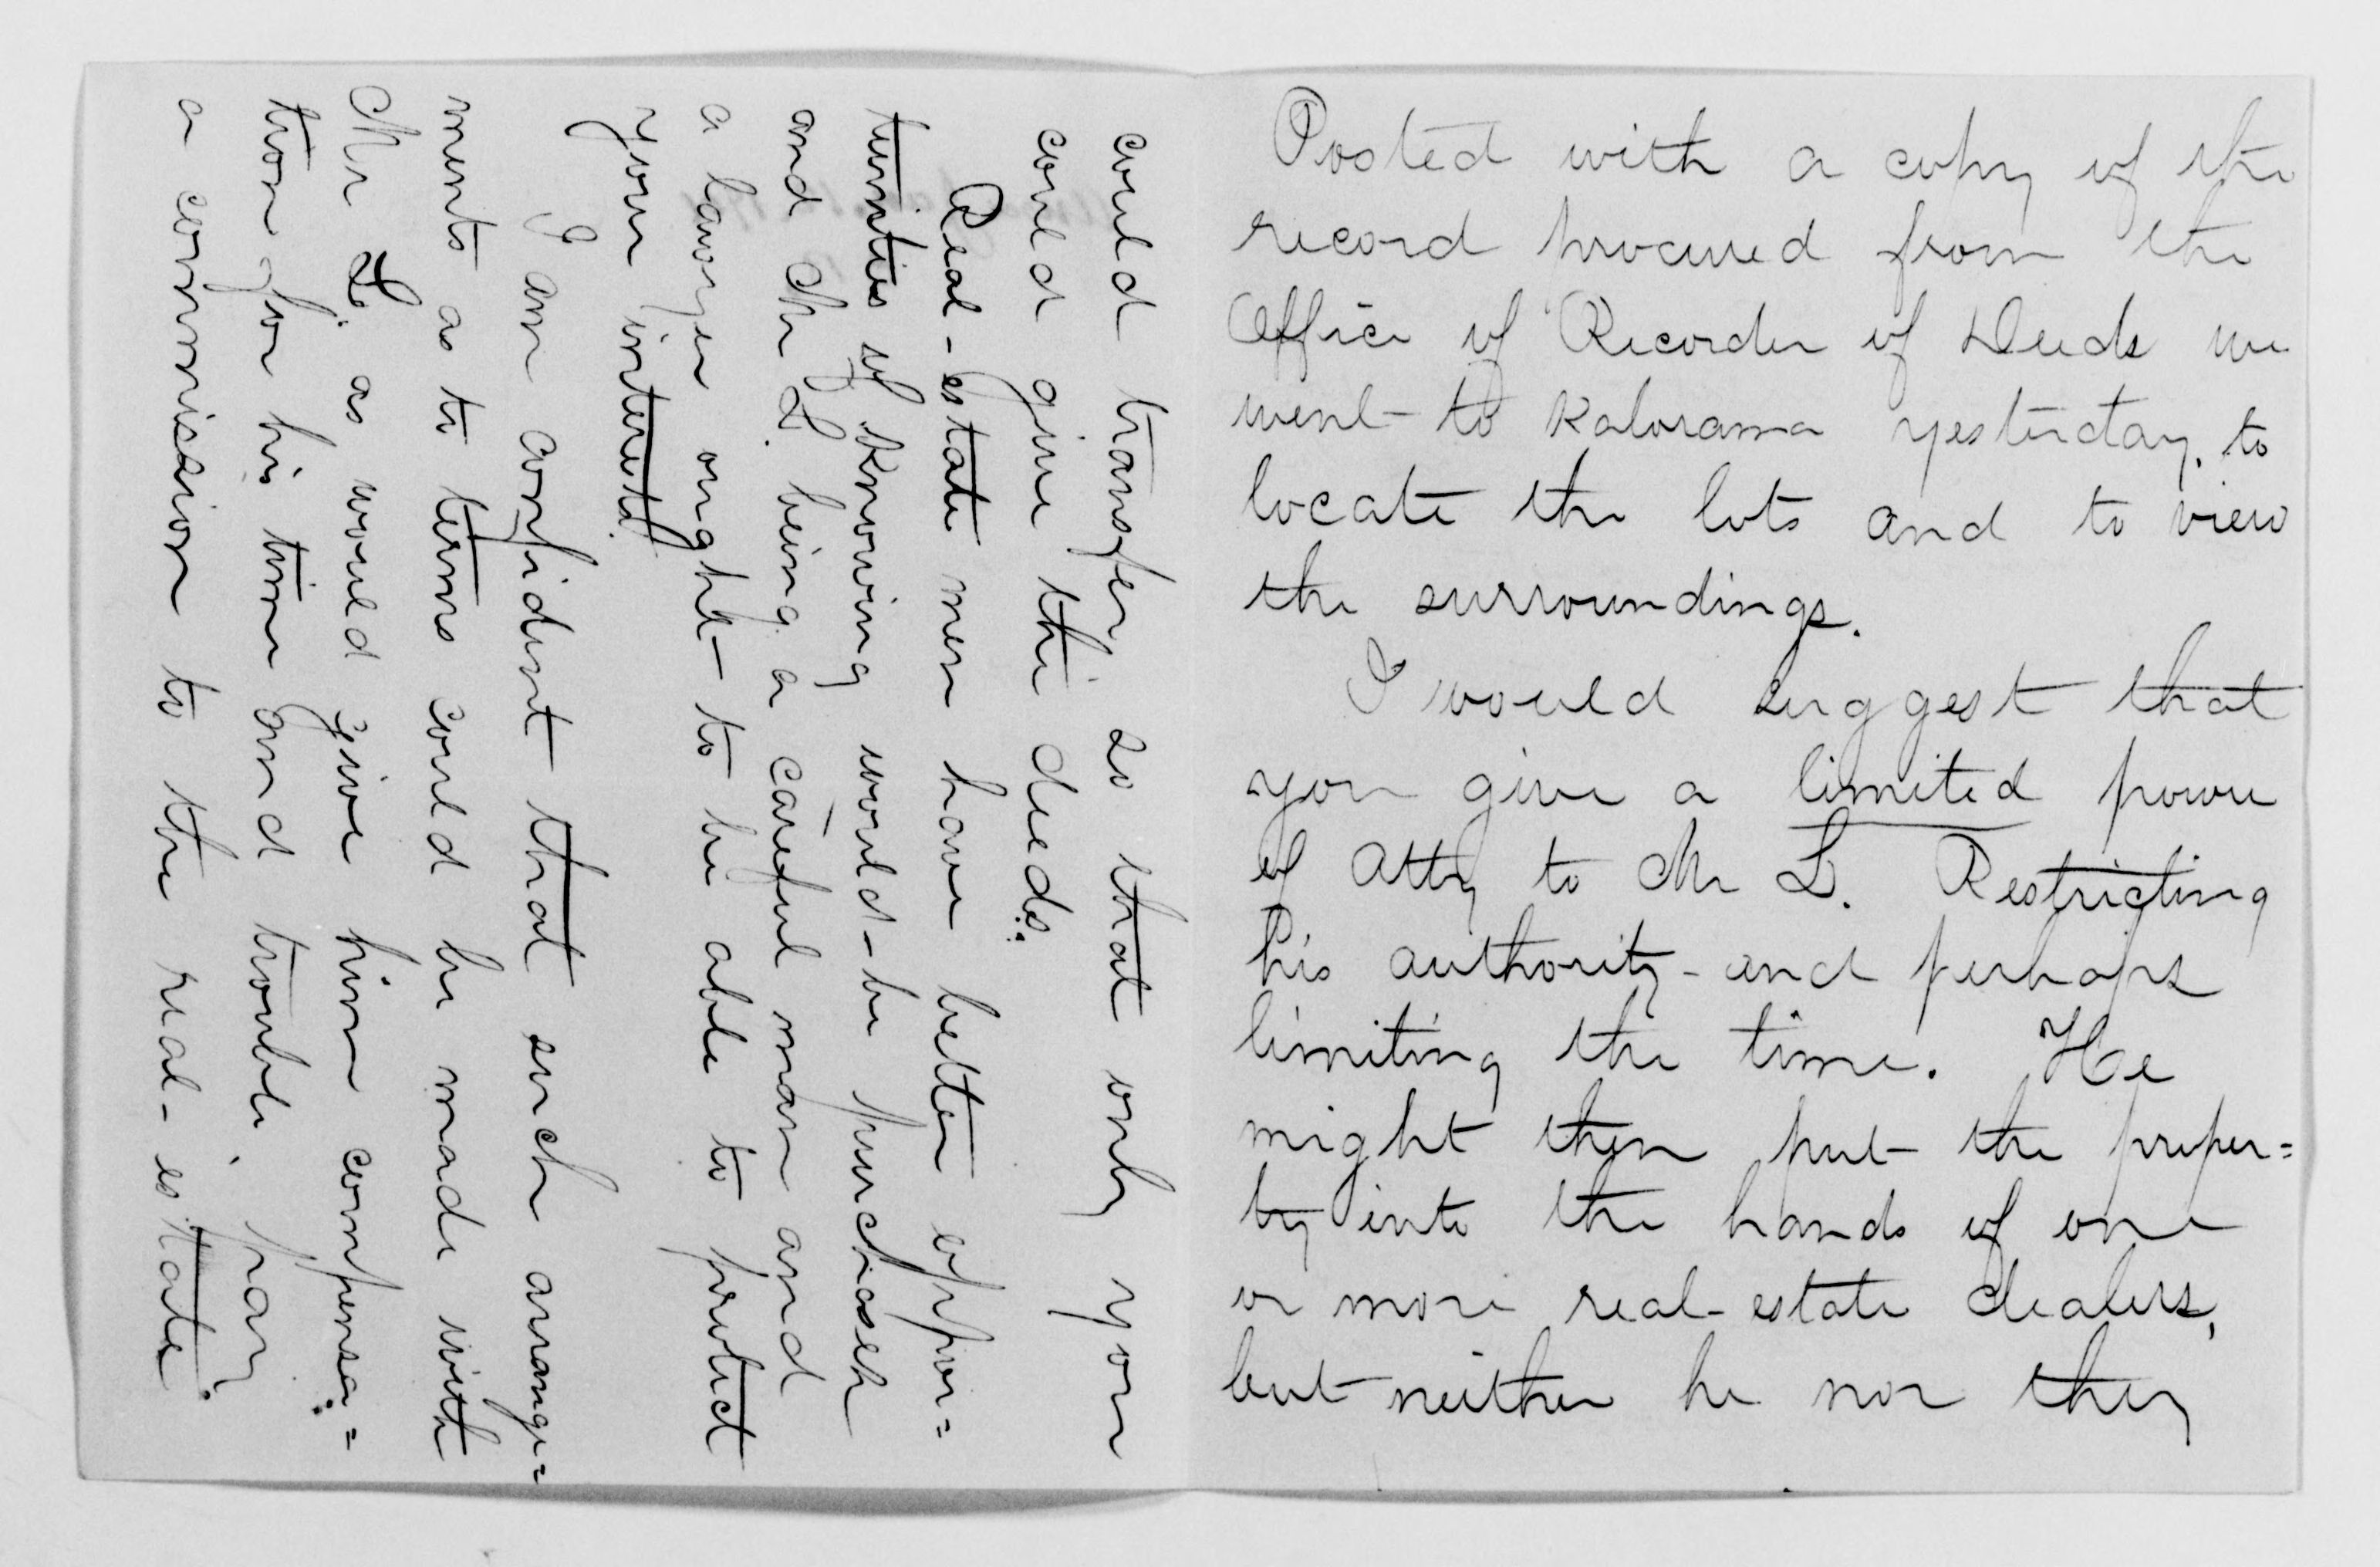 Posted with a copy of the
record procured from the
Office of Recorder of Deeds we
went to Kalorama yesterday, to
locate the lots and to view
the surroundings.
I would suggest that
you give a limited power
of Atty to Mr L. Restricting
his authority - and perhaps
limiting the time. He
might then put the proper=
ty into the hands of one
or more real-estate dealers,
but neither he nor they
could transfer, so that only you
could give the deeds.
Real-estate men have better oppor=
tunities of knowing would-be purchaser
and Mr L. being a careful man and
a lawyer ought to be able to protect
your interests.
I am confident that such arrange=
ments as to terms could be made with
Mr L. as would give him compensa=
tion for his time and trouble, pay
a commission to the real-estate